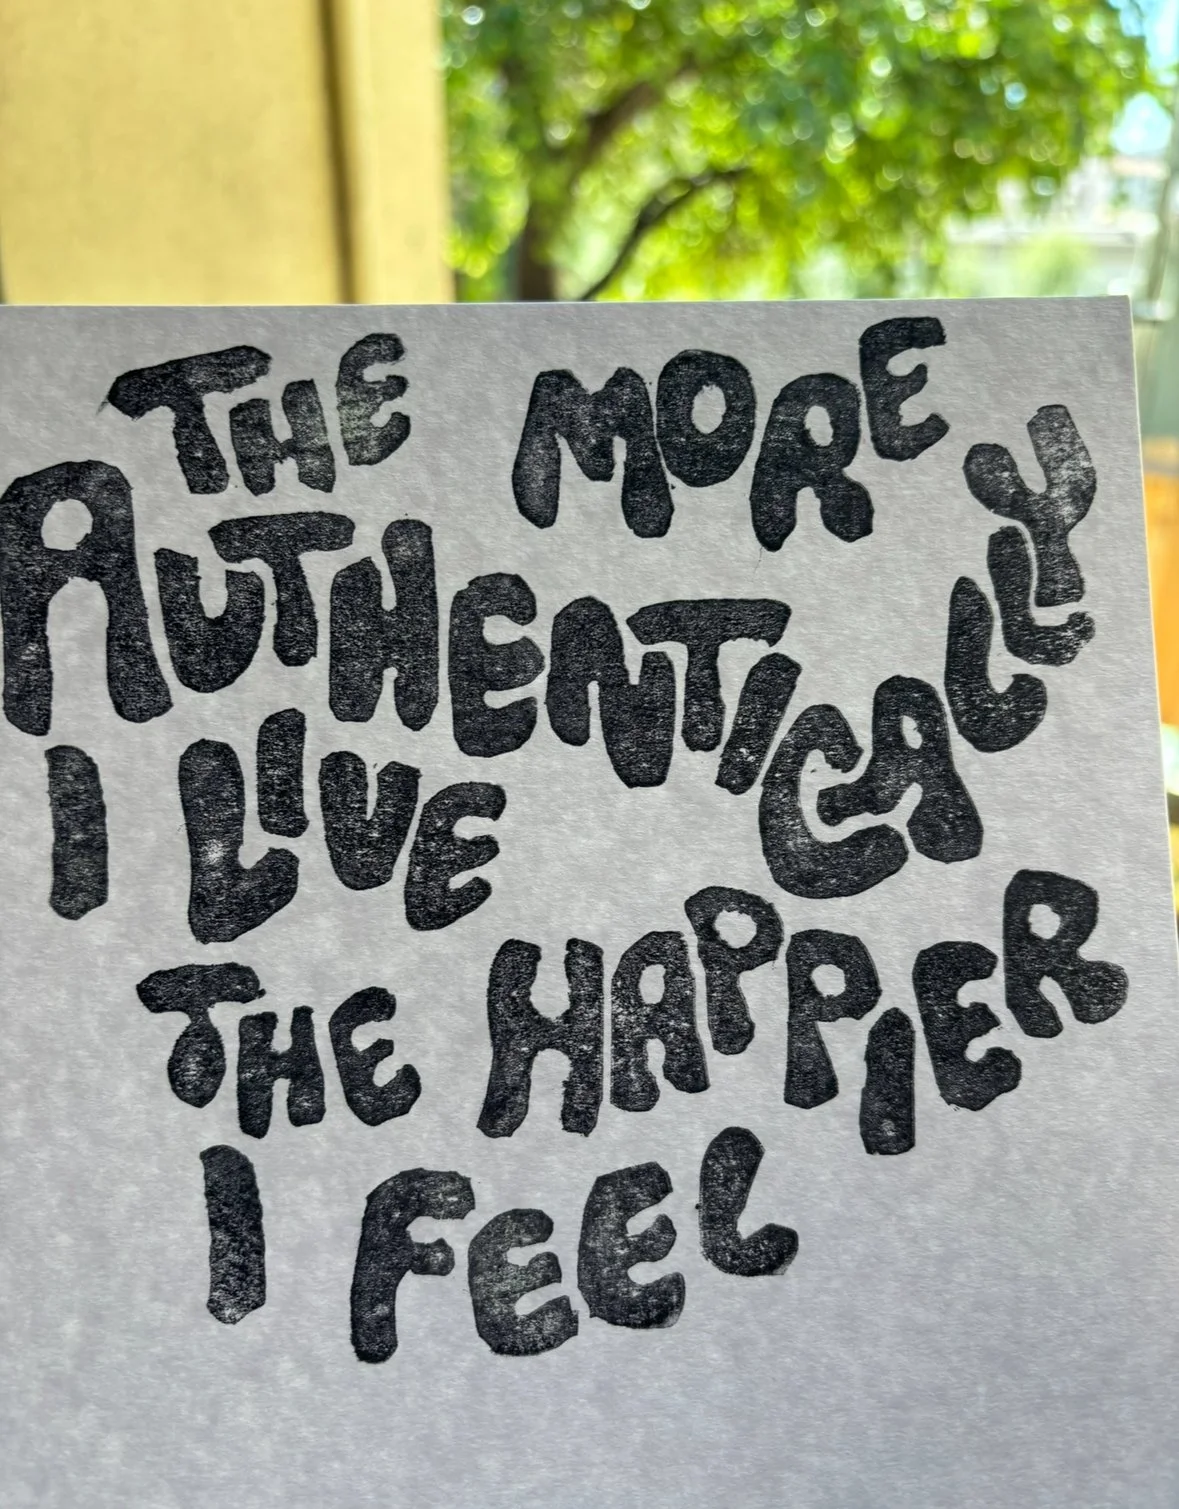 THE MORE
AUTHENTICALLY
I LIVE
THE HAPPIER
I FEEL